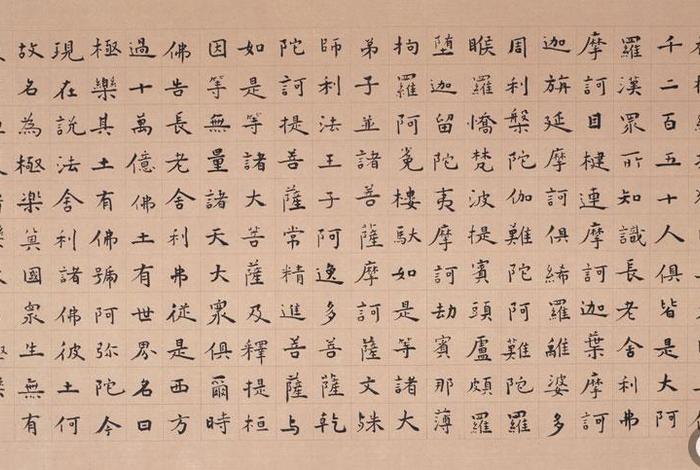 千二百五十人俱皆是大阿
羅漢眾所知識長老舍利弗
摩訶目犍連摩訶迦葉摩訶
迦旃延摩訶俱絺羅離婆多
周利槃陀伽難陀阿難陀羅
睺羅憍梵波提賓頭盧頗羅
堕迦留陀夷摩訶劫賓那薄
拘羅阿㝹樓馱如是等諸大
弟子並諸菩薩摩訶薩文殊
師利法王子阿逸多菩薩乾
陀訶提菩薩常精進菩薩与
如是等諸大菩薩及釋提桓
因等無量諸天大眾俱爾時
佛告長老舍利弗従是西方
過十萬億佛土有世界名曰
極樂其土有佛號阿弥陀今
現在説法舍利諸佛彼土何
故名為極楽其國衆生無有